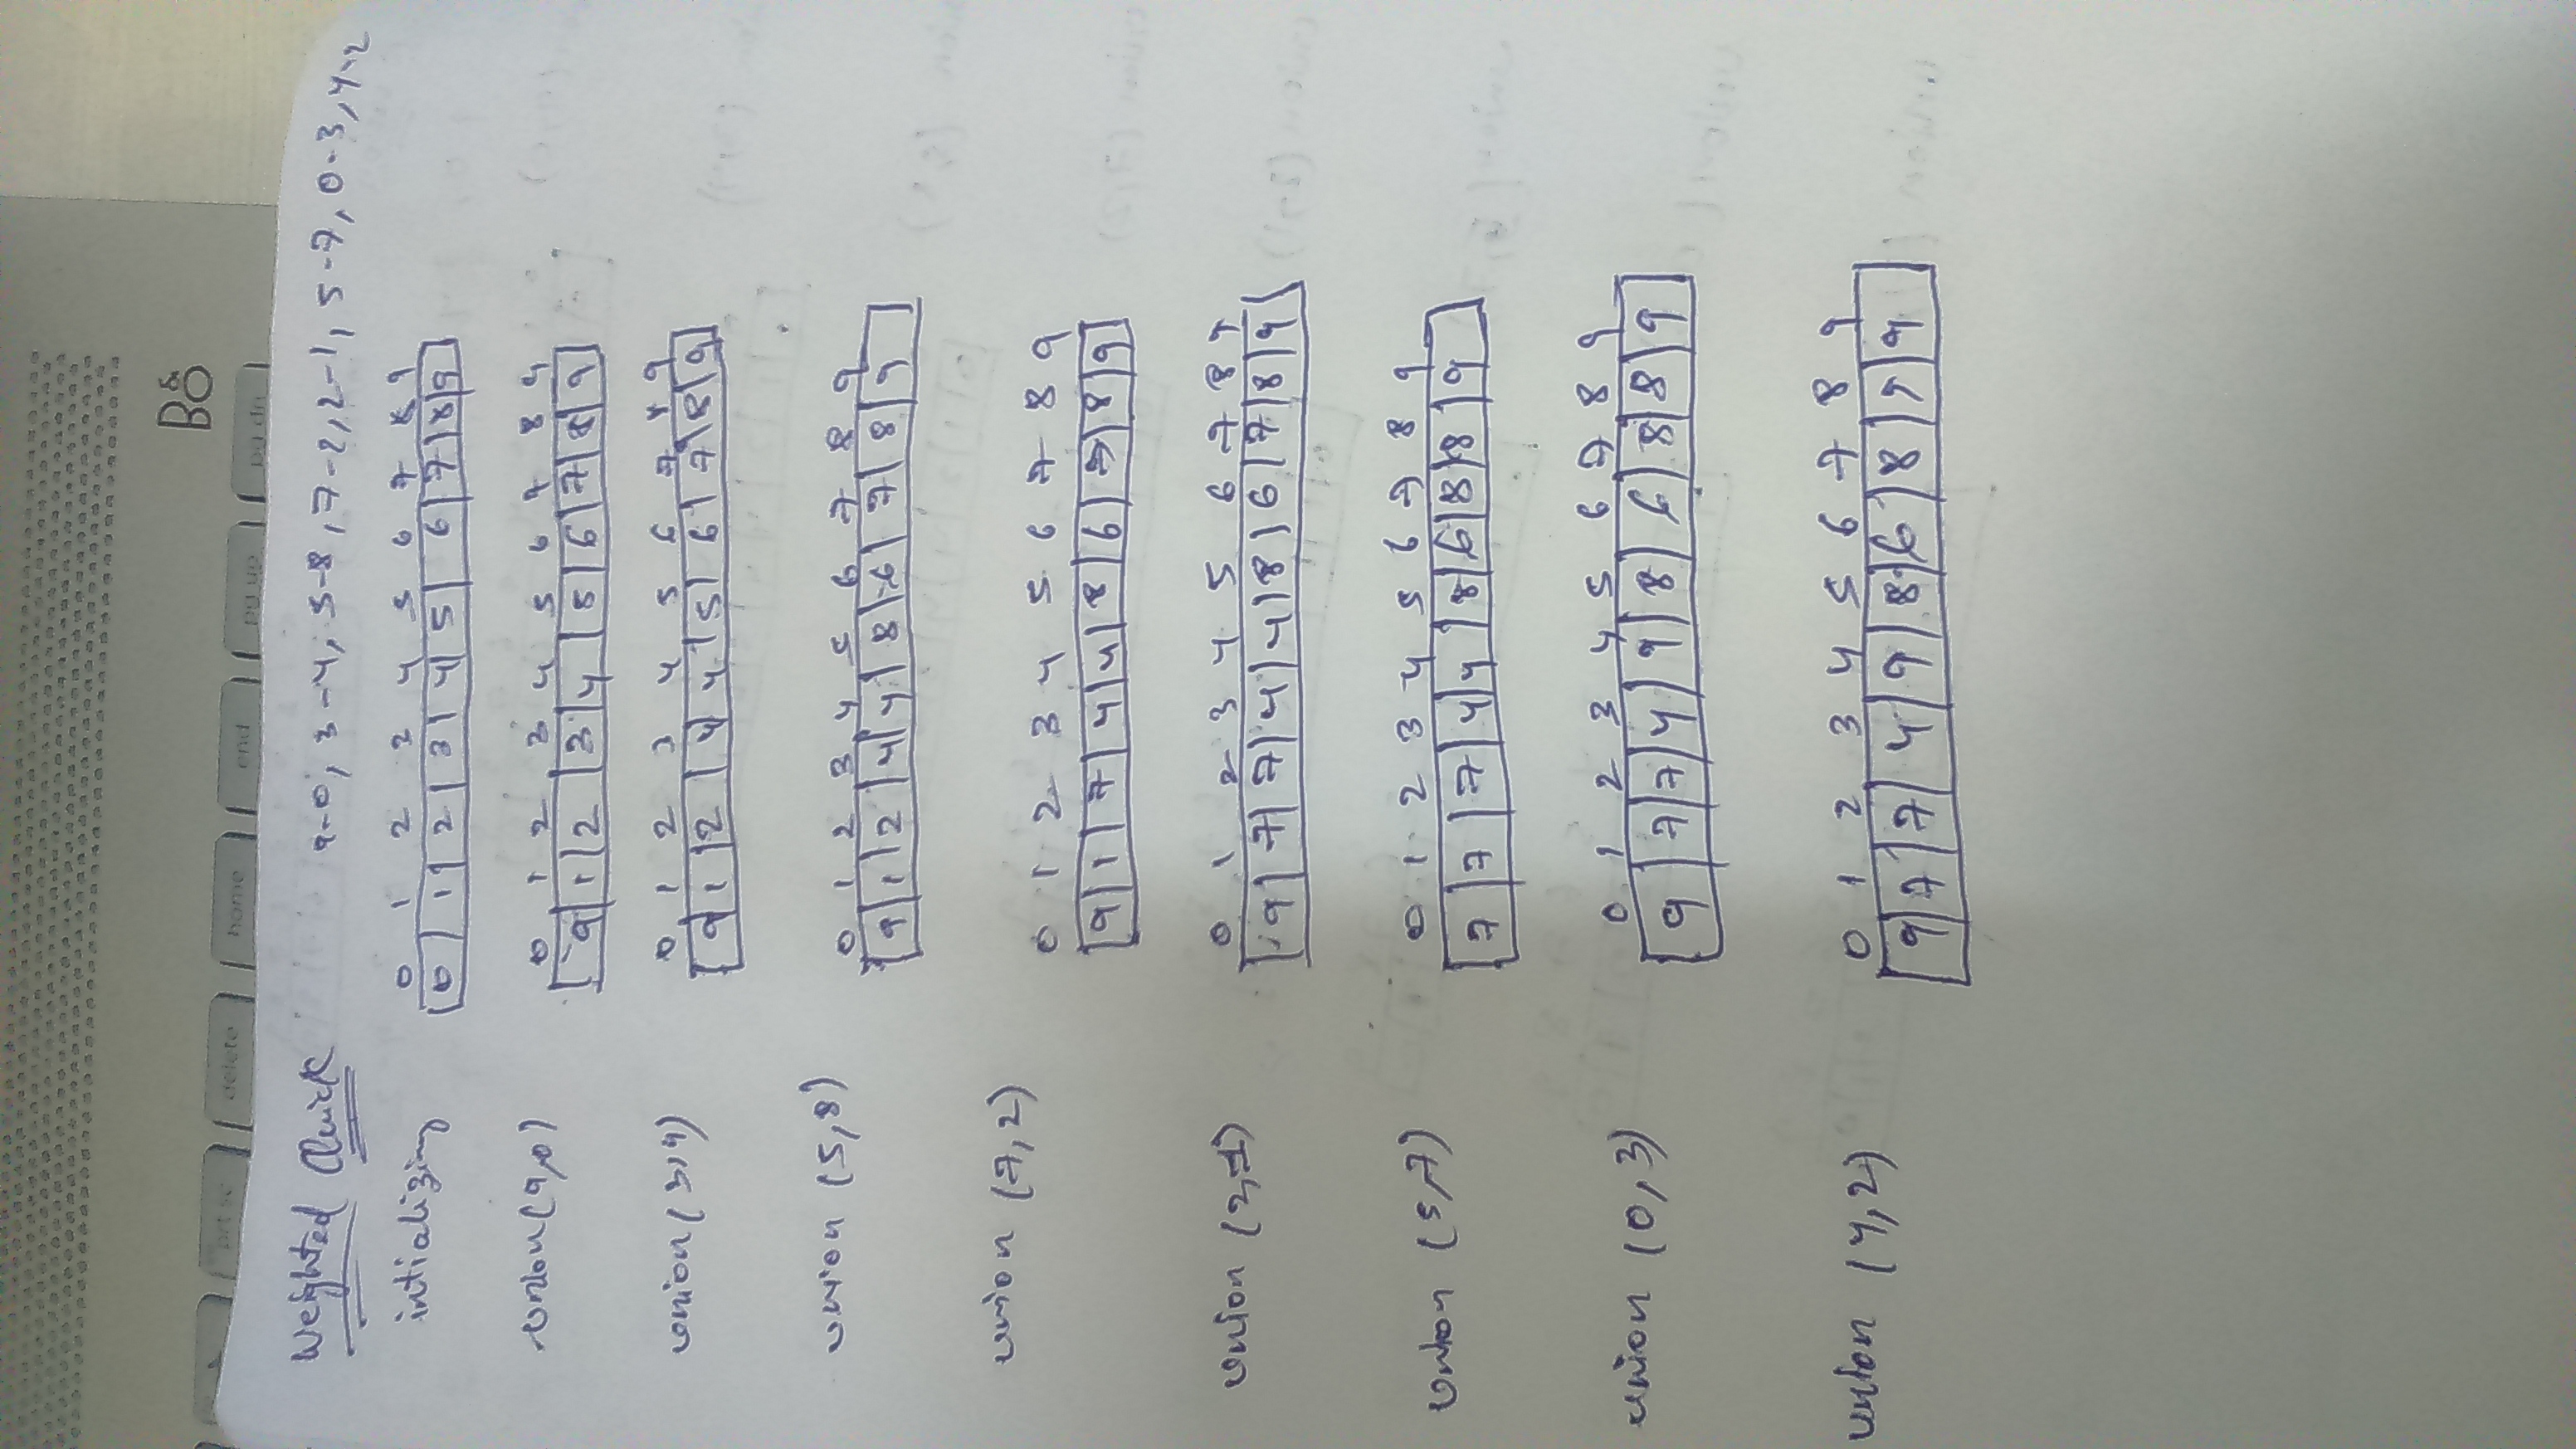 B&O
prt sc delete home end pg up pg dn
Weighted Quick 9-0, 3-4, 5-8, 7-2, 2-1, 5-7, 0-3, 4-2
intializing
0 1 2 3 4 5 6 7 8 9
0 1 2 3 4 5 6 7 8 9
union(9,0)
0 1 2 3 4 5 6 7 8 9
9 1 2 3 4 5 6 7 8 9
union(3,4)
0 1 2 3 4 5 6 7 8 9
9 1 2 4 4 5 6 7 8 9
union (5,8)
0 1 2 3 4 5 6 7 8 9
9 1 2 4 4 8 6 7 8 9
union (7,2)
0 1 2 3 4 5 6 7 8 9
9 1 7 4 4 8 6 7 8 9
union (2,1)
0 1 2 3 4 5 6 7 8 9
9 7 7 4 4 8 6 7 8 9
union (5,7)
0 1 2 3 4 5 6 7 8 9
7 7 7 4 4 8 6 8 8 9
union (0,3)
0 1 2 3 4 5 6 7 8 9
9 7 7 4 9 8 6 8 8 9
union (4,2)
0 1 2 3 4 5 6 7 8 9
9 7 7 4 9 8 6 8 9 9